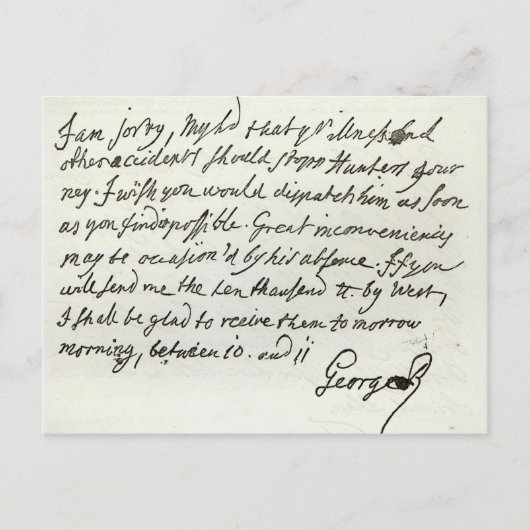 I am sorry, My Ld that yr illness and
other accidents should stopp Hunters Jour
ney. I wish you would dispatch him as soon
as you find possible. Great inconveniencys
may be occasion'd by his absence. If you
will send me the ten thousand tt. by West,
I shall be glad to receive them to morrow
morning, between 10. and 11
George R